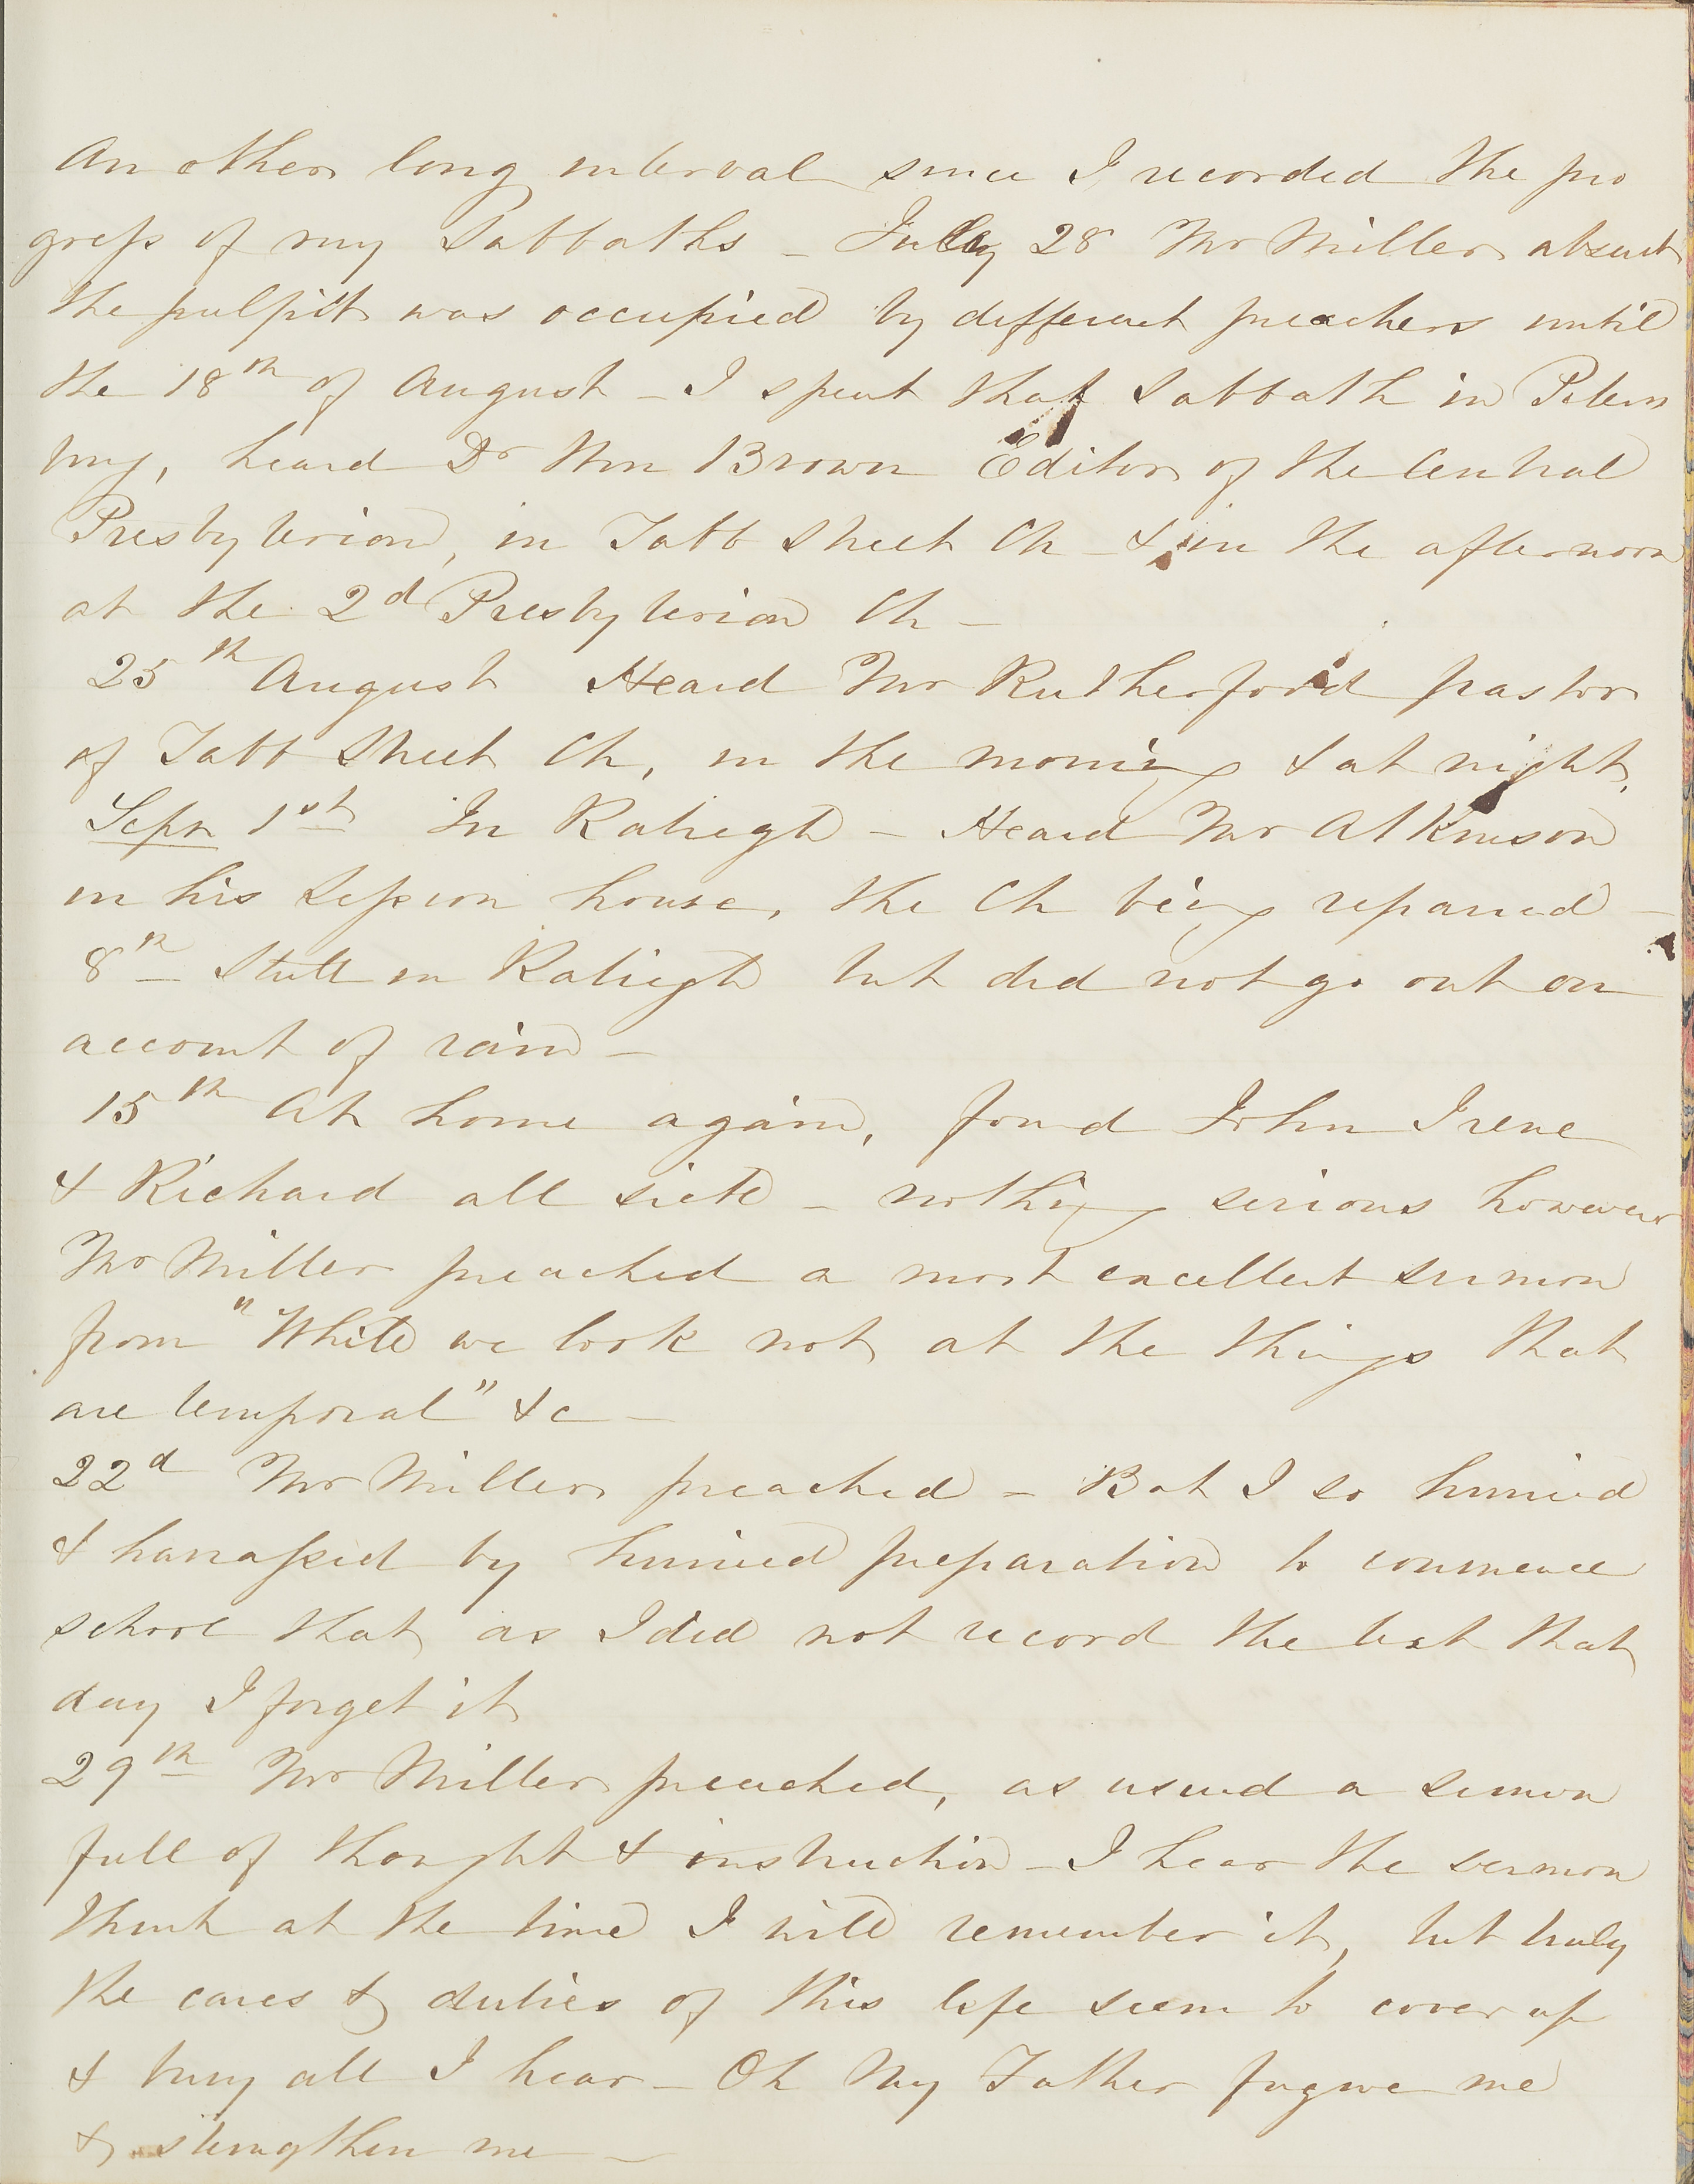 An other long interval since I recorded the pro
gress of my Sabbaths - July 28 Mr Miller absent
the pulpit was occupied by different preachers until
the 18th of August - I spent that Sabbath in Peters
burg, heard Dr Wm Brown Editor of the Central
Presbyterian, in Tabb Street Ch - & in the afternoon
at the 2d Presbyterian Ch -
25th August Heard Mr Rutherford pastor
of Tabb Street Ch, in the morning & at night,
Sepr 1st In Raliegh - Heard Mr Atkinson
in his Session house, the Ch being repaired -
8th Still in Raliegh but did not go out on
account of rain -
15th At home again, found John Irene
& Richard all sick - nothing serious however
Mr Miller preached a most excellent sermon
from "While we look not at the things that
are temporal" &c -
22d Mr Miller preached - But I so hurried
& harrassed by hurried preparation to commence
school that as I did not record the text that
day I forget it
29th Mr Miller preached, as usual a sermon
full of thought & instruction - I hear the sermon
think at the time I will remember it, but truly
the cares & duties of this life seem to cover up
& bury all I hear - Oh My Father forgive me
& strengthen me -